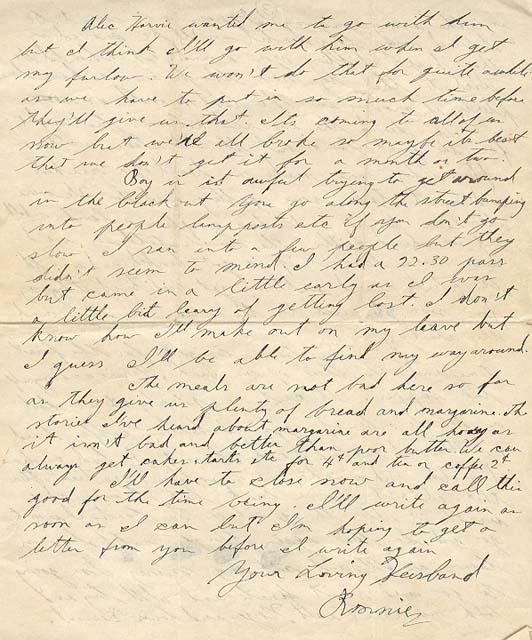 Alec Harvie wanted me to go with him
but I think I'll go with him when I get
my furlow. We won't do that for quite awhile
as we have to put in so much time before
they'll give us that. Its coming to all of us
now but we're all broke so maybe its best
that we don't get it for a month or two.
Boy it is awful trying to get around
in the blackout you go along the street bumping
into people lamp posts etc if you don't go
slow I ran into a few people but they
didn't seem to mind. I had a 22.30 pass
but came in a little early as I was
a little bit leary of getting lost. I don't
know how I'll make out on my leave but
I guess I'll be able to find my way around.
The meals are not bad here so far
as they give us plenty of bread and margarine. The
stories I've heard about margarine are all hooey as
it isn't bad and better than poor butter. We can
always get cakes tarts etc for 4d and tea or coffee 2d
I'll have to close now and call this
good for the time being. I'll write again as
soon as I can but I'm hoping to get a
letter from you before I write again
Your Loving Husband
Ronnie